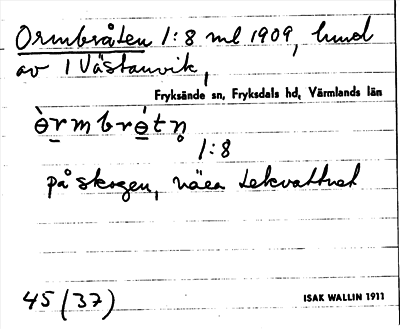 Ormbråten 1:8 ml 1909, hmd
av 1 Västanvik,
Fryksände sn, Fryksdals hd, Värmlands län
ò̱rmbró̱tn̥
1:8
på skogen, nära Lekvattnet
45 (37)
ISAK WALLIN 1911